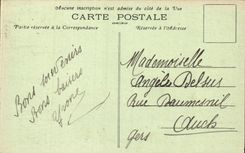 Aucune inscription n'est admise du côté de la Vue
CARTE POSTALE
Partie réservée à la Correspondance
Réservée à l'Adresse
Bons souvenirs
Bons baisers
Yvonne
Mademoiselle
Angèle Delsus
Rue Daumesnil
Auch
Gers